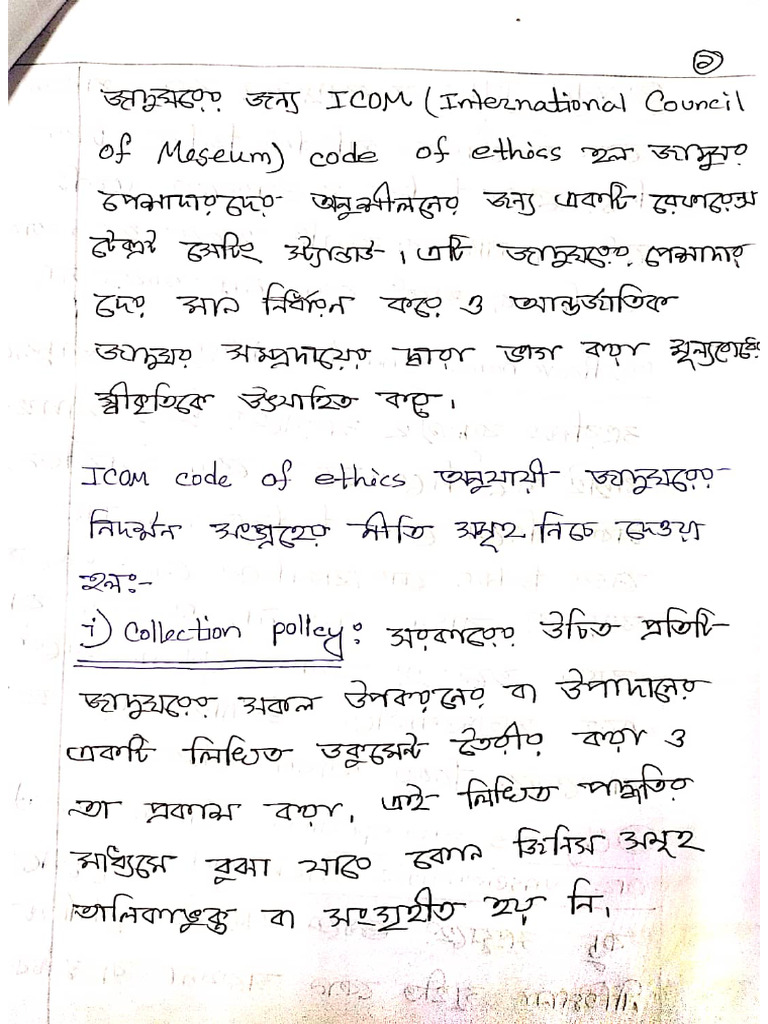 ২
জাদুঘরের জন্য ICOM (International Council
of Meseum) code of ethics হল জাদুঘর
পেশাদারদের অনুশীলনের জন্য একটি রেফারেন্স
টেক্সট সেটিং স্ট্যান্ডার্ড। এটি জাদুঘরের পেশাদার
দের মান নির্ধারন করে ও আন্তর্জাতিক
জাদুঘর সম্প্রদায়ের দ্বারা ভাগ করা মূল্যবোধের
স্বীকৃতিকে উৎসাহিত করে।
ICOM code of ethics অনুযায়ী জাদুঘরের
নিদর্শন সংগ্রহের নীতি সমূহ নিচে দেওয়া
হল:-
i) Collection policy: সরকারের উচিত প্রতিটি
জাদুঘরের সকল উপকরনের বা উপাদানের
একটি লিখিত ডকুমেন্ট তৈরীর করা ও
তা প্রকাশ করা। এই লিখিত পদ্ধতির
মাধ্যমে বুঝা যাবে কোন জিনিস সমূহ
তালিকাভুক্ত বা সংগৃহীত হয় নি।